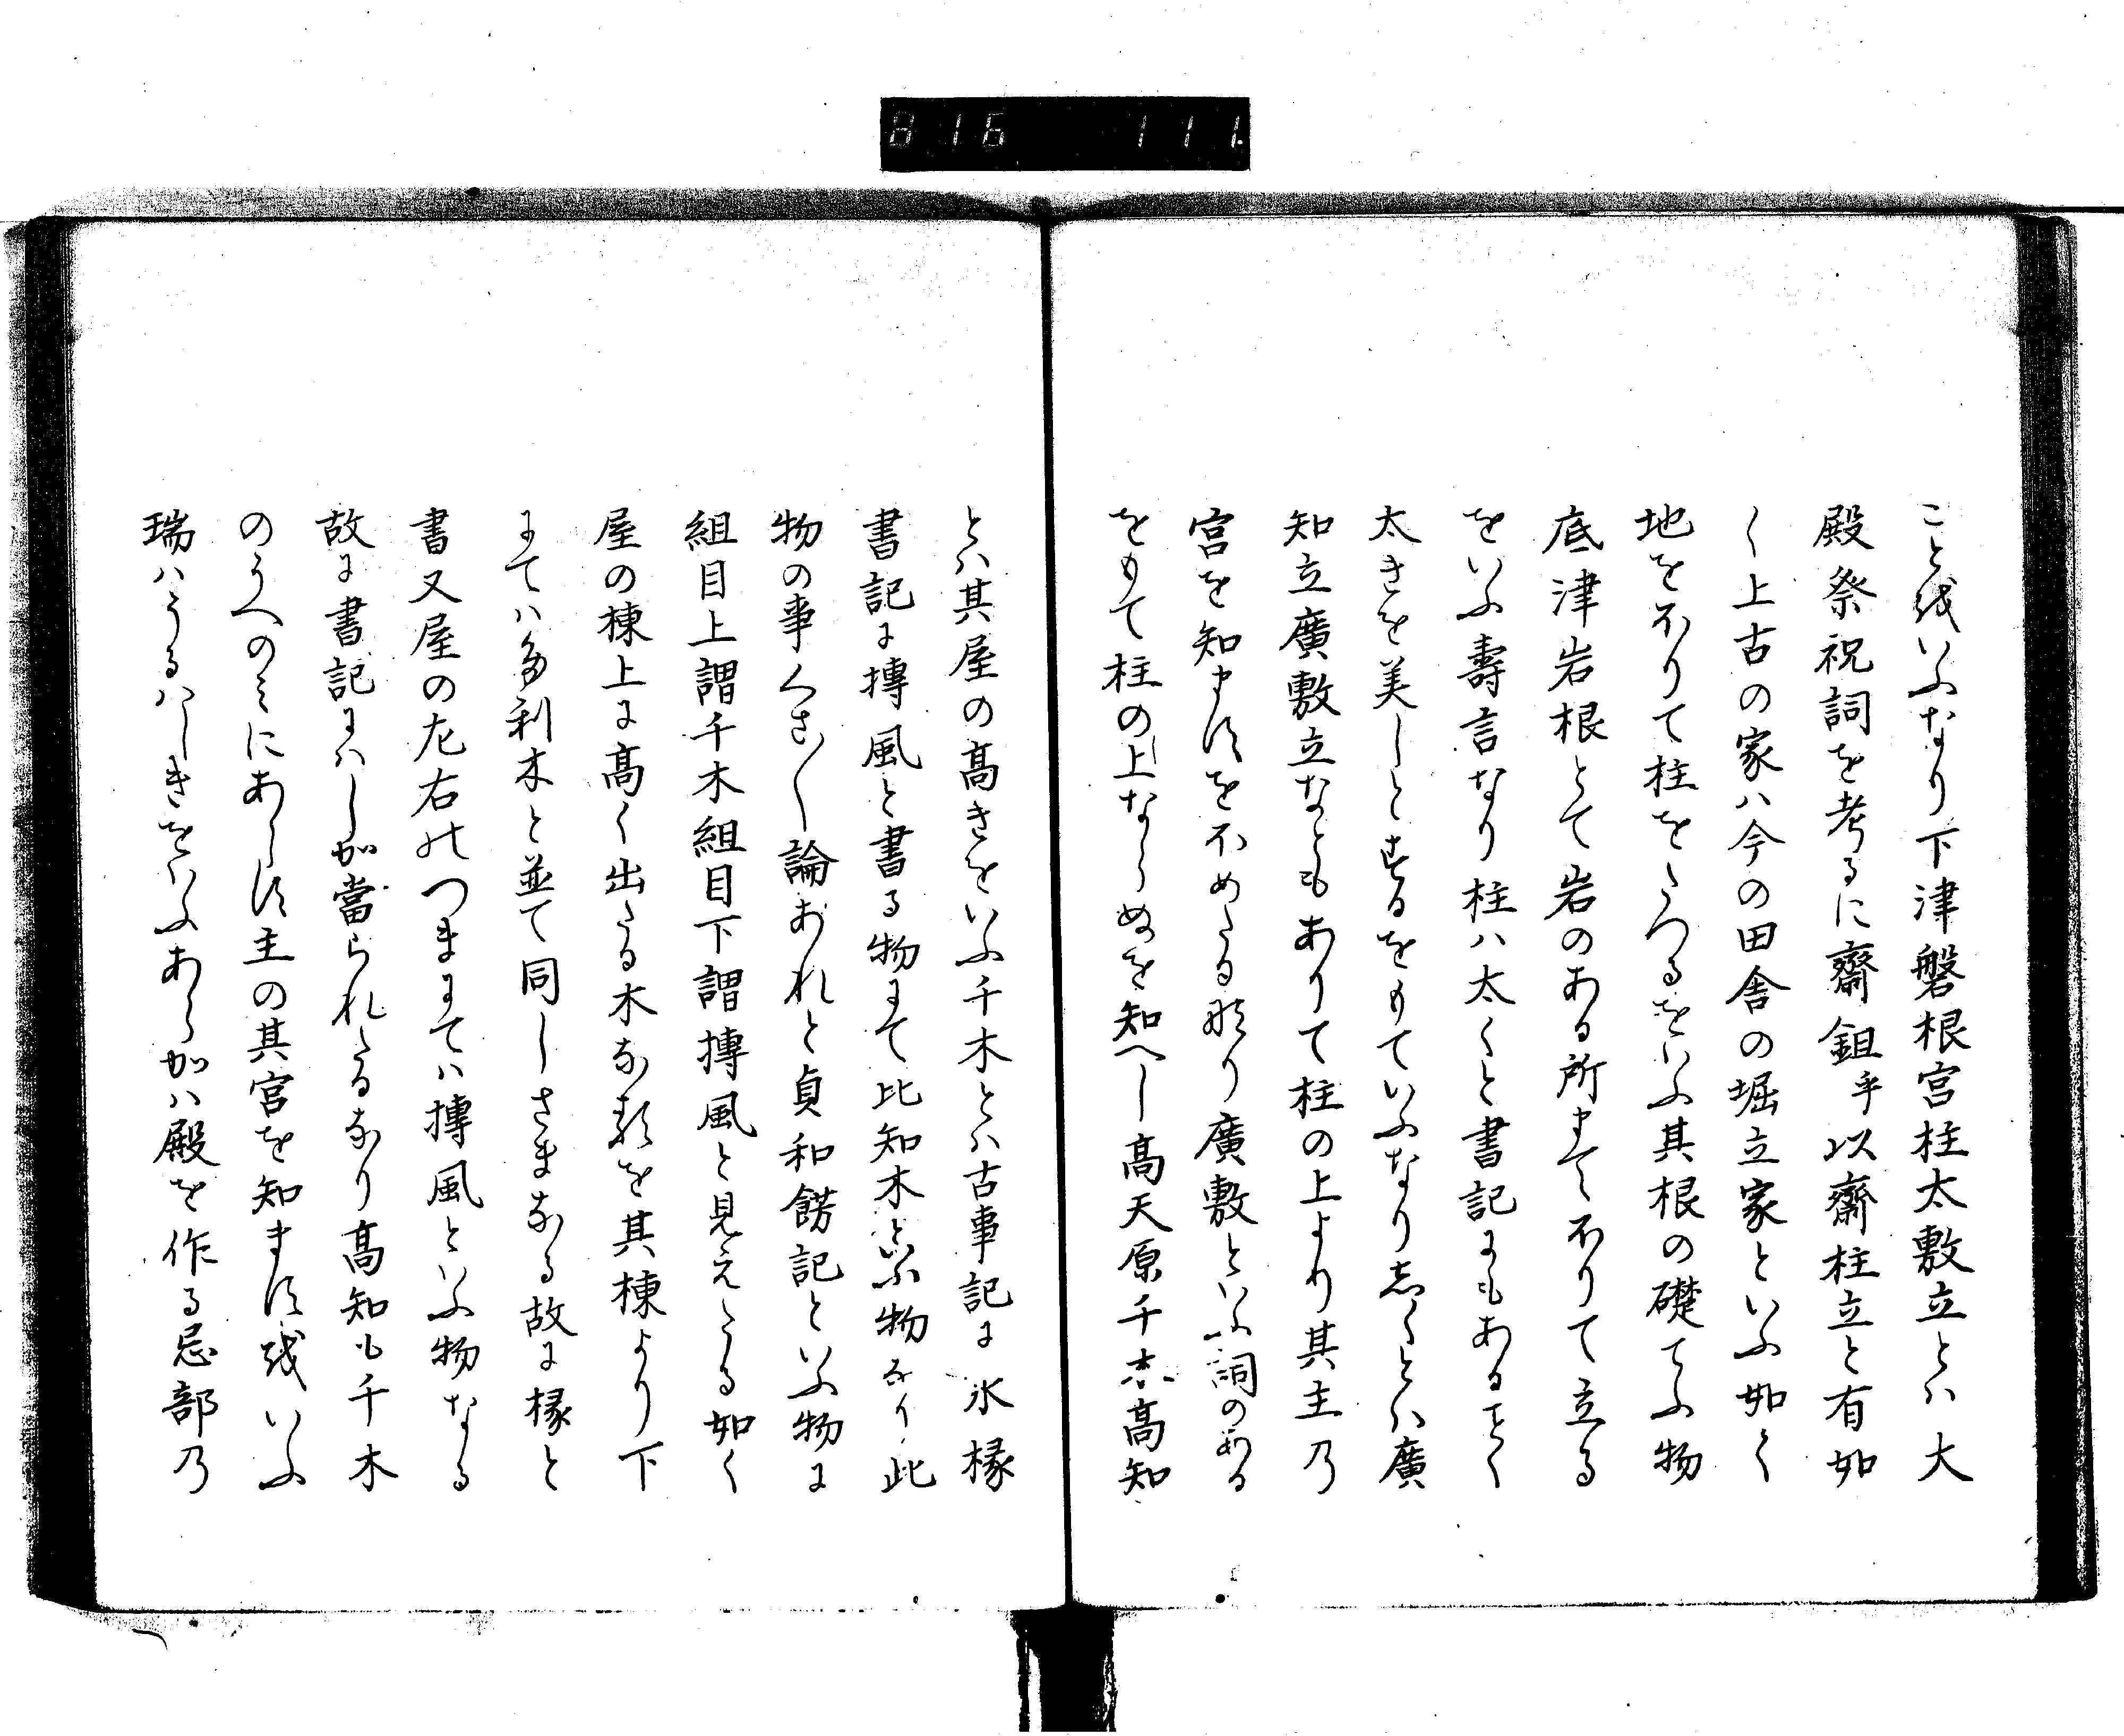 816 111.
ことをいふなり下津磐根宮柱太敷立とハ大
殿祭祝詞を考るに齋鉏乎以齋柱立と有如
く上古の家ハ今の田舎の堀立家といふ如く
地をほりて柱をたつるをいふ其根の礎てふ物
底津岩根とて岩のある所まてほりて立る
をいふ壽言なり柱ハ太くと書記にもあることく
太きを美しとするをもていふなり志くとハ廣
知立廣敷立なともありて柱の上より其主乃
宮を知ますをほめたる也廣敷といふ詞のある
をもて柱の上ならぬを知へし高天原千木高知
とハ其屋の高きをいふ千木とハ古事記に氷椽
書記に搏風と書る物にて比知木といふ物なり此
物の事くさ〳〵論あれと貞和餝記といふ物に
組目上謂千木組目下謂搏風と見えたる如く
屋の棟上に高く出たる木なるを其棟より下
にてハ多利木と並て同しさまなる故に椽と
書又屋の左右のつまにてハ搏風といふ物なる
故に書記にハしか當られたるなり高知も千木
のうへのミにあらす主の其宮を知ますをいふ
瑞ハうるハしきをいふあらかハ殿を作る忌部乃